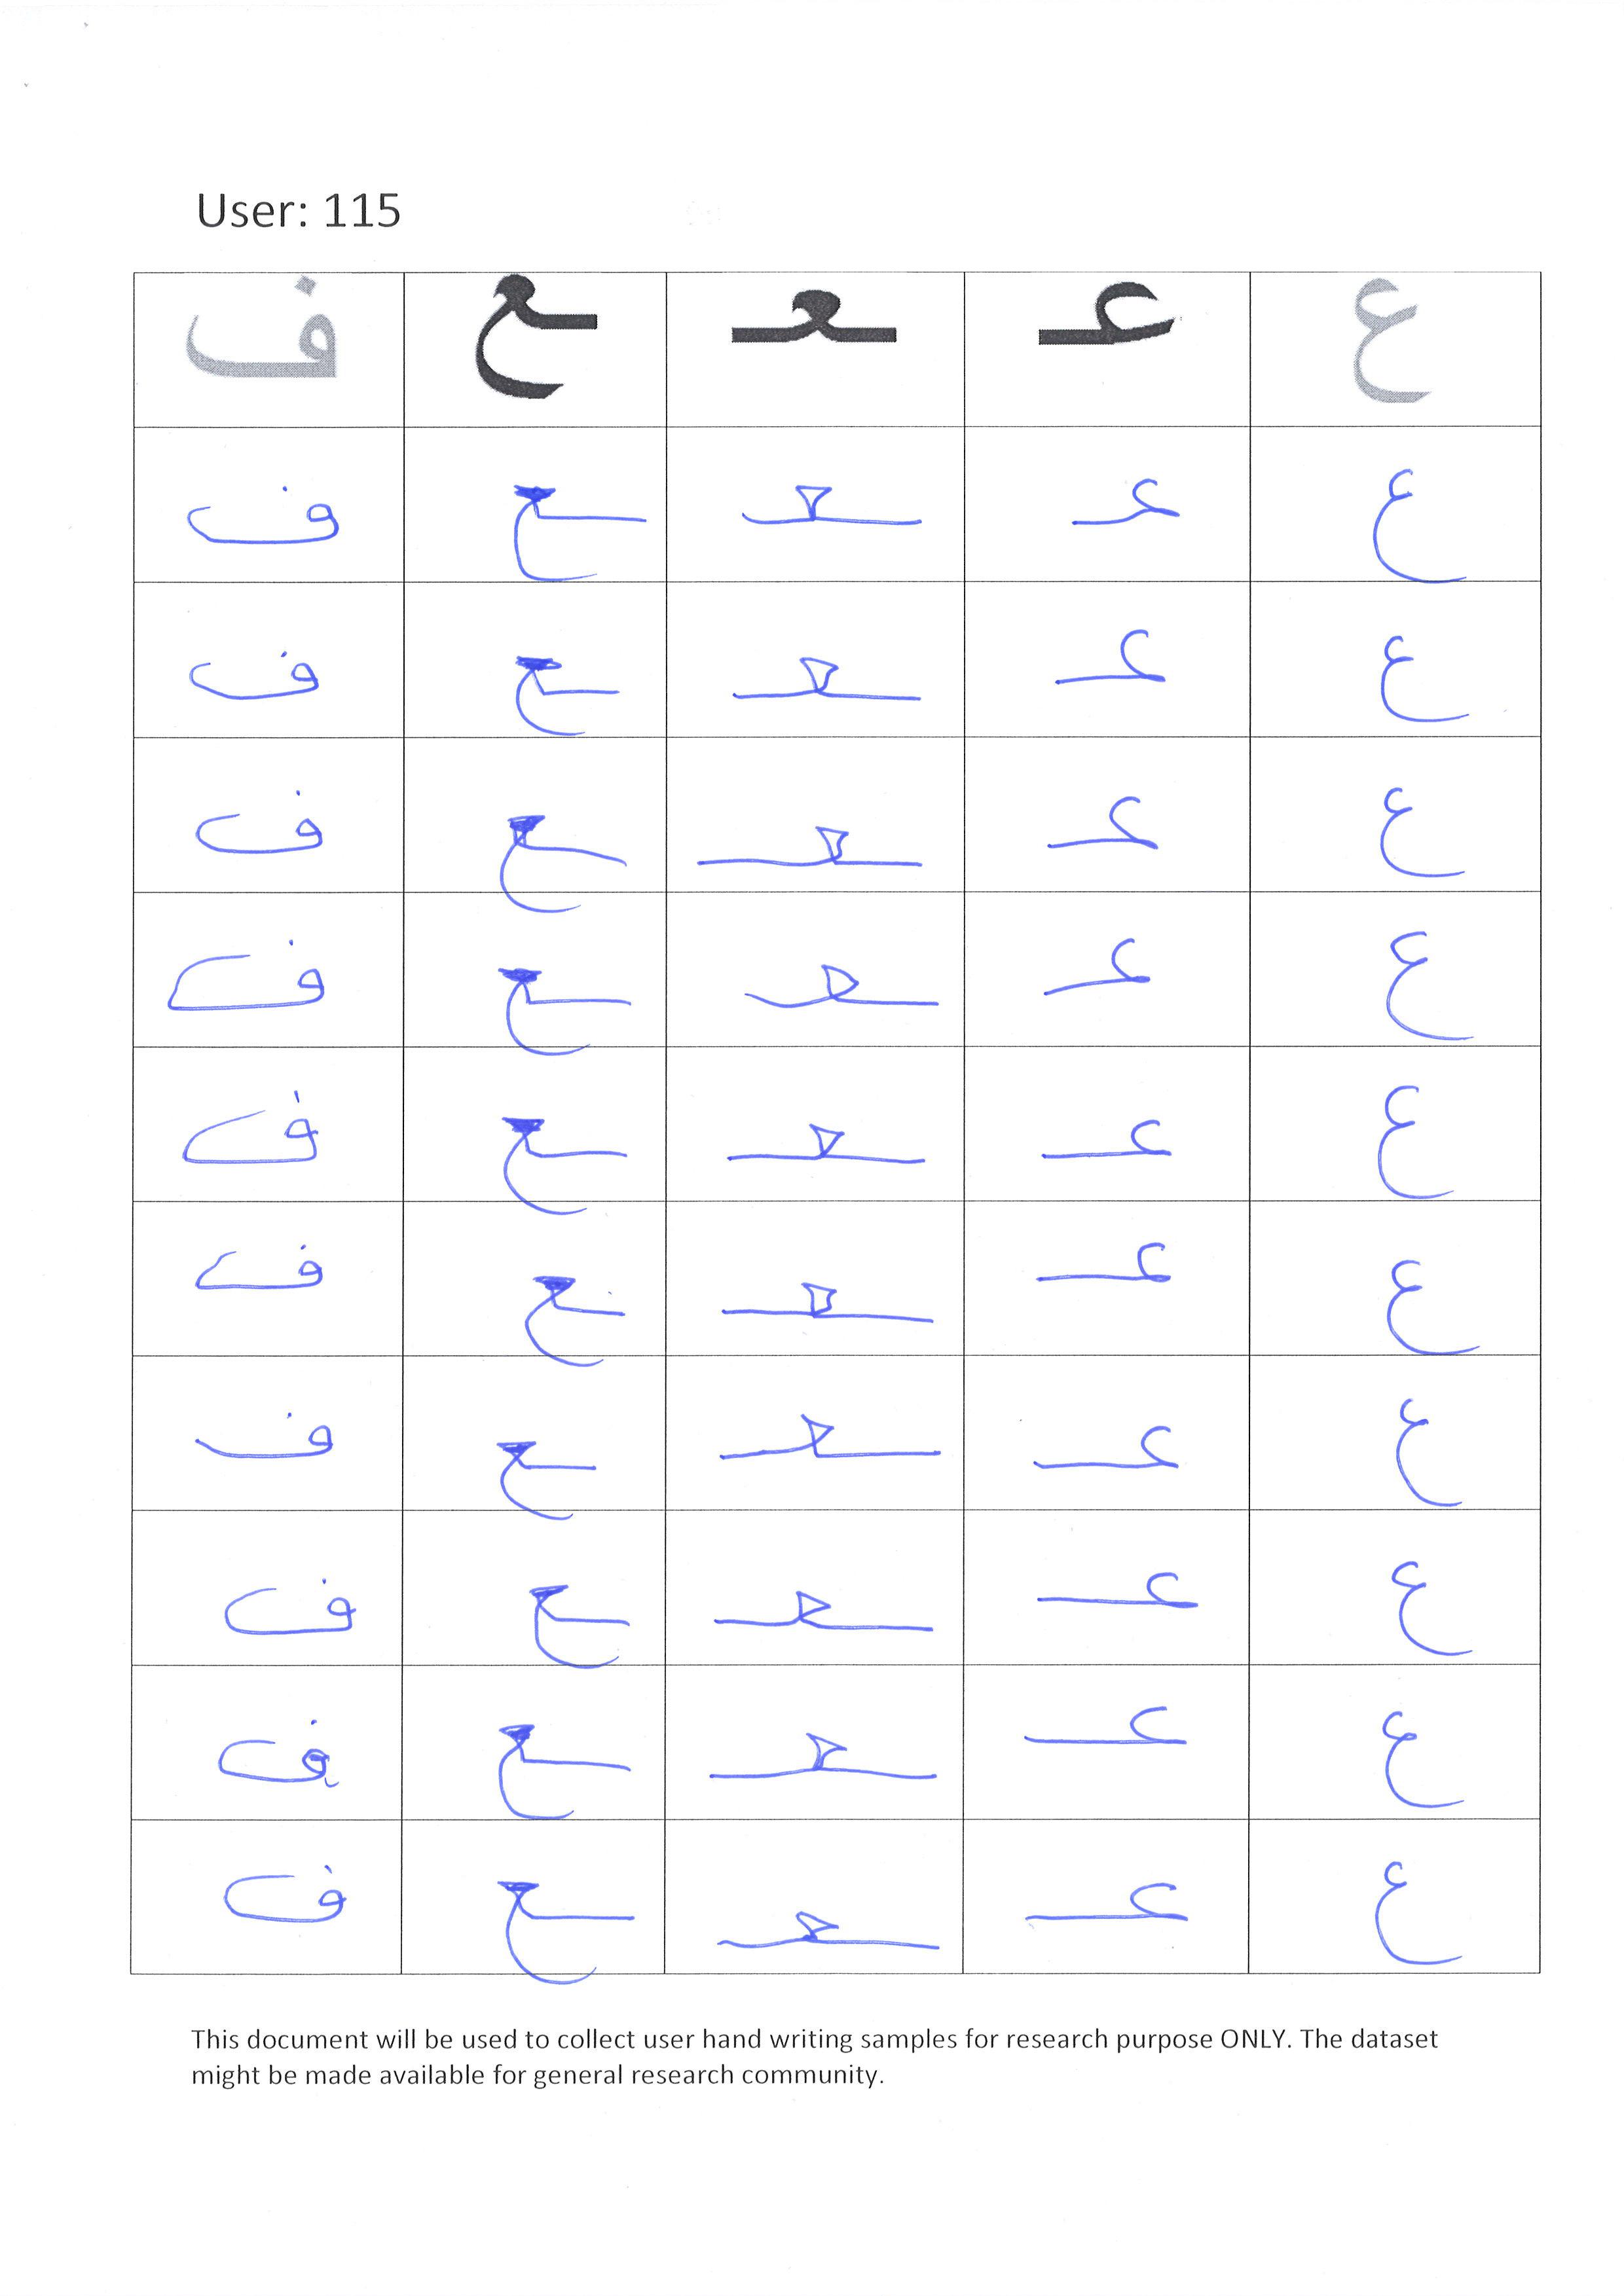 User: 115
ع عـ ـعـ ـع ف
ع عـ ـعـ ـع ف
ع عـ ـعـ ـع ف
ع عـ ـعـ ـع ف
ع عـ ـعـ ـع ف
ع عـ ـعـ ـع ف
ع عـ ـعـ ـع ف
ع عـ ـعـ ـع ف
ع عـ ـعـ ـع ف
ع عـ ـعـ ـع ف
ع عـ ـعـ ـع ف
This document will be used to collect user hand writing samples for research purpose ONLY. The dataset
might be made available for general research community.